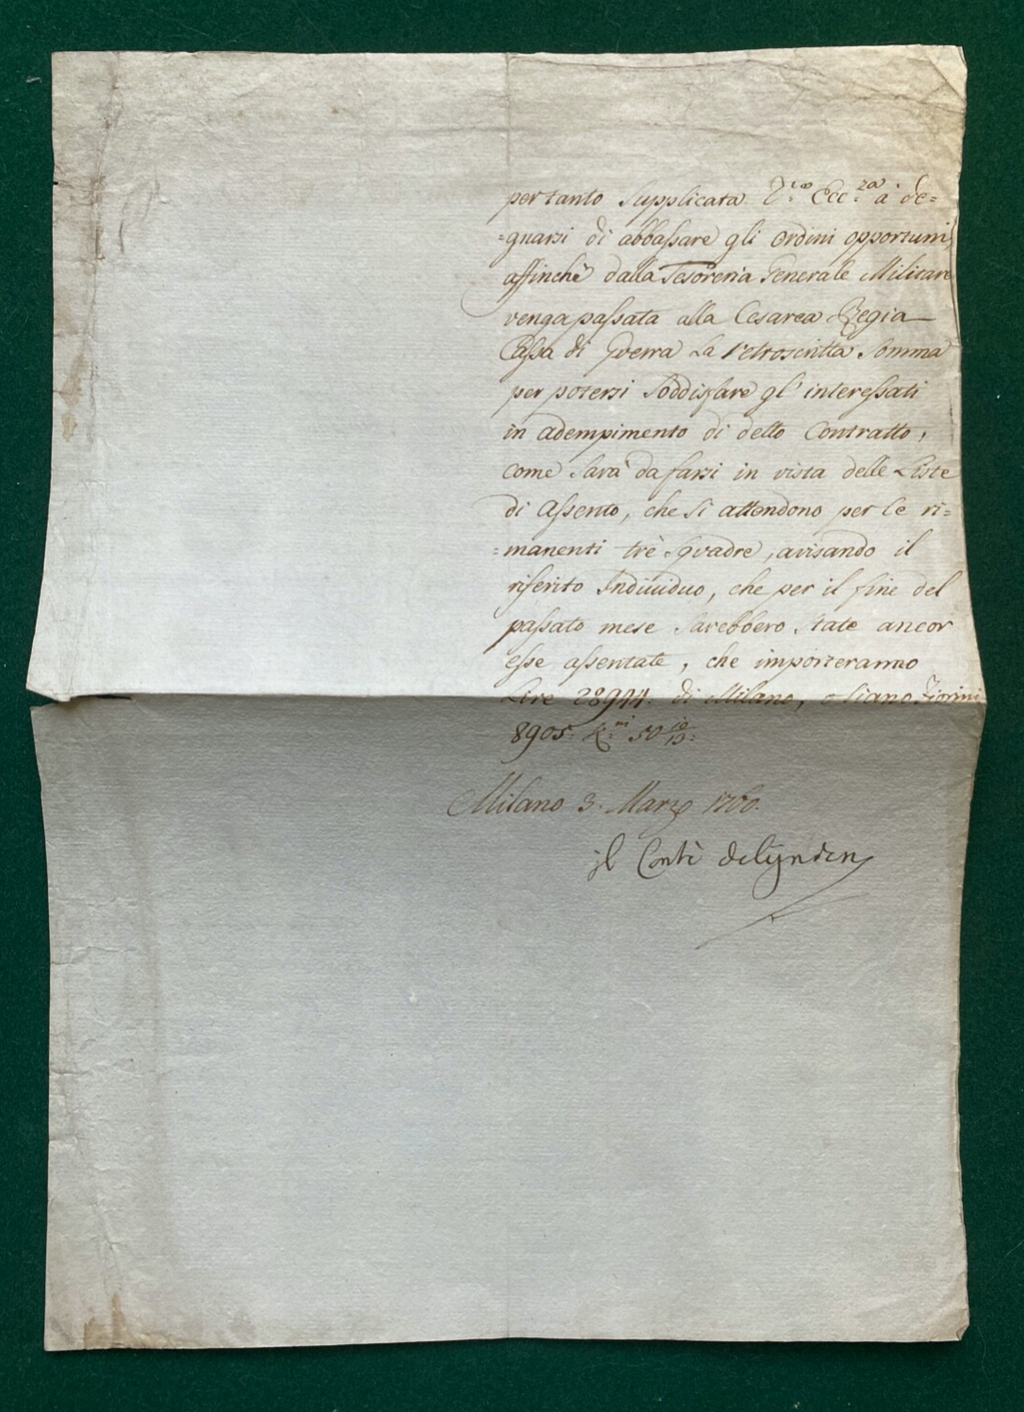 per tanto Supplicata V.ra Ecc.za à de=
=gnarsi di abbassare gli Ordini opportuni,
affinchè dalla Tesoreria Generale Militare
venga passata alla Cesarea Regia
Cassa di Guerra La retroscritta Somma
per potersi Soddisfare gl' interessati
in adempimento di detto Contratto,
come Sarà da farsi in vista delle Liste
di Assento, che Si attendono per le ri=
=manenti trè Squadre, avisando il
riferito Individuo, che per il fine del
passato mese Sarebbero State ancor
esse assentate, che importeranno
Lire 28944. di Milano, o Siano Fiorini
8905. K.ni 50 10/13.
Milano 3. Marzo 1760.
il Conte de Lynden